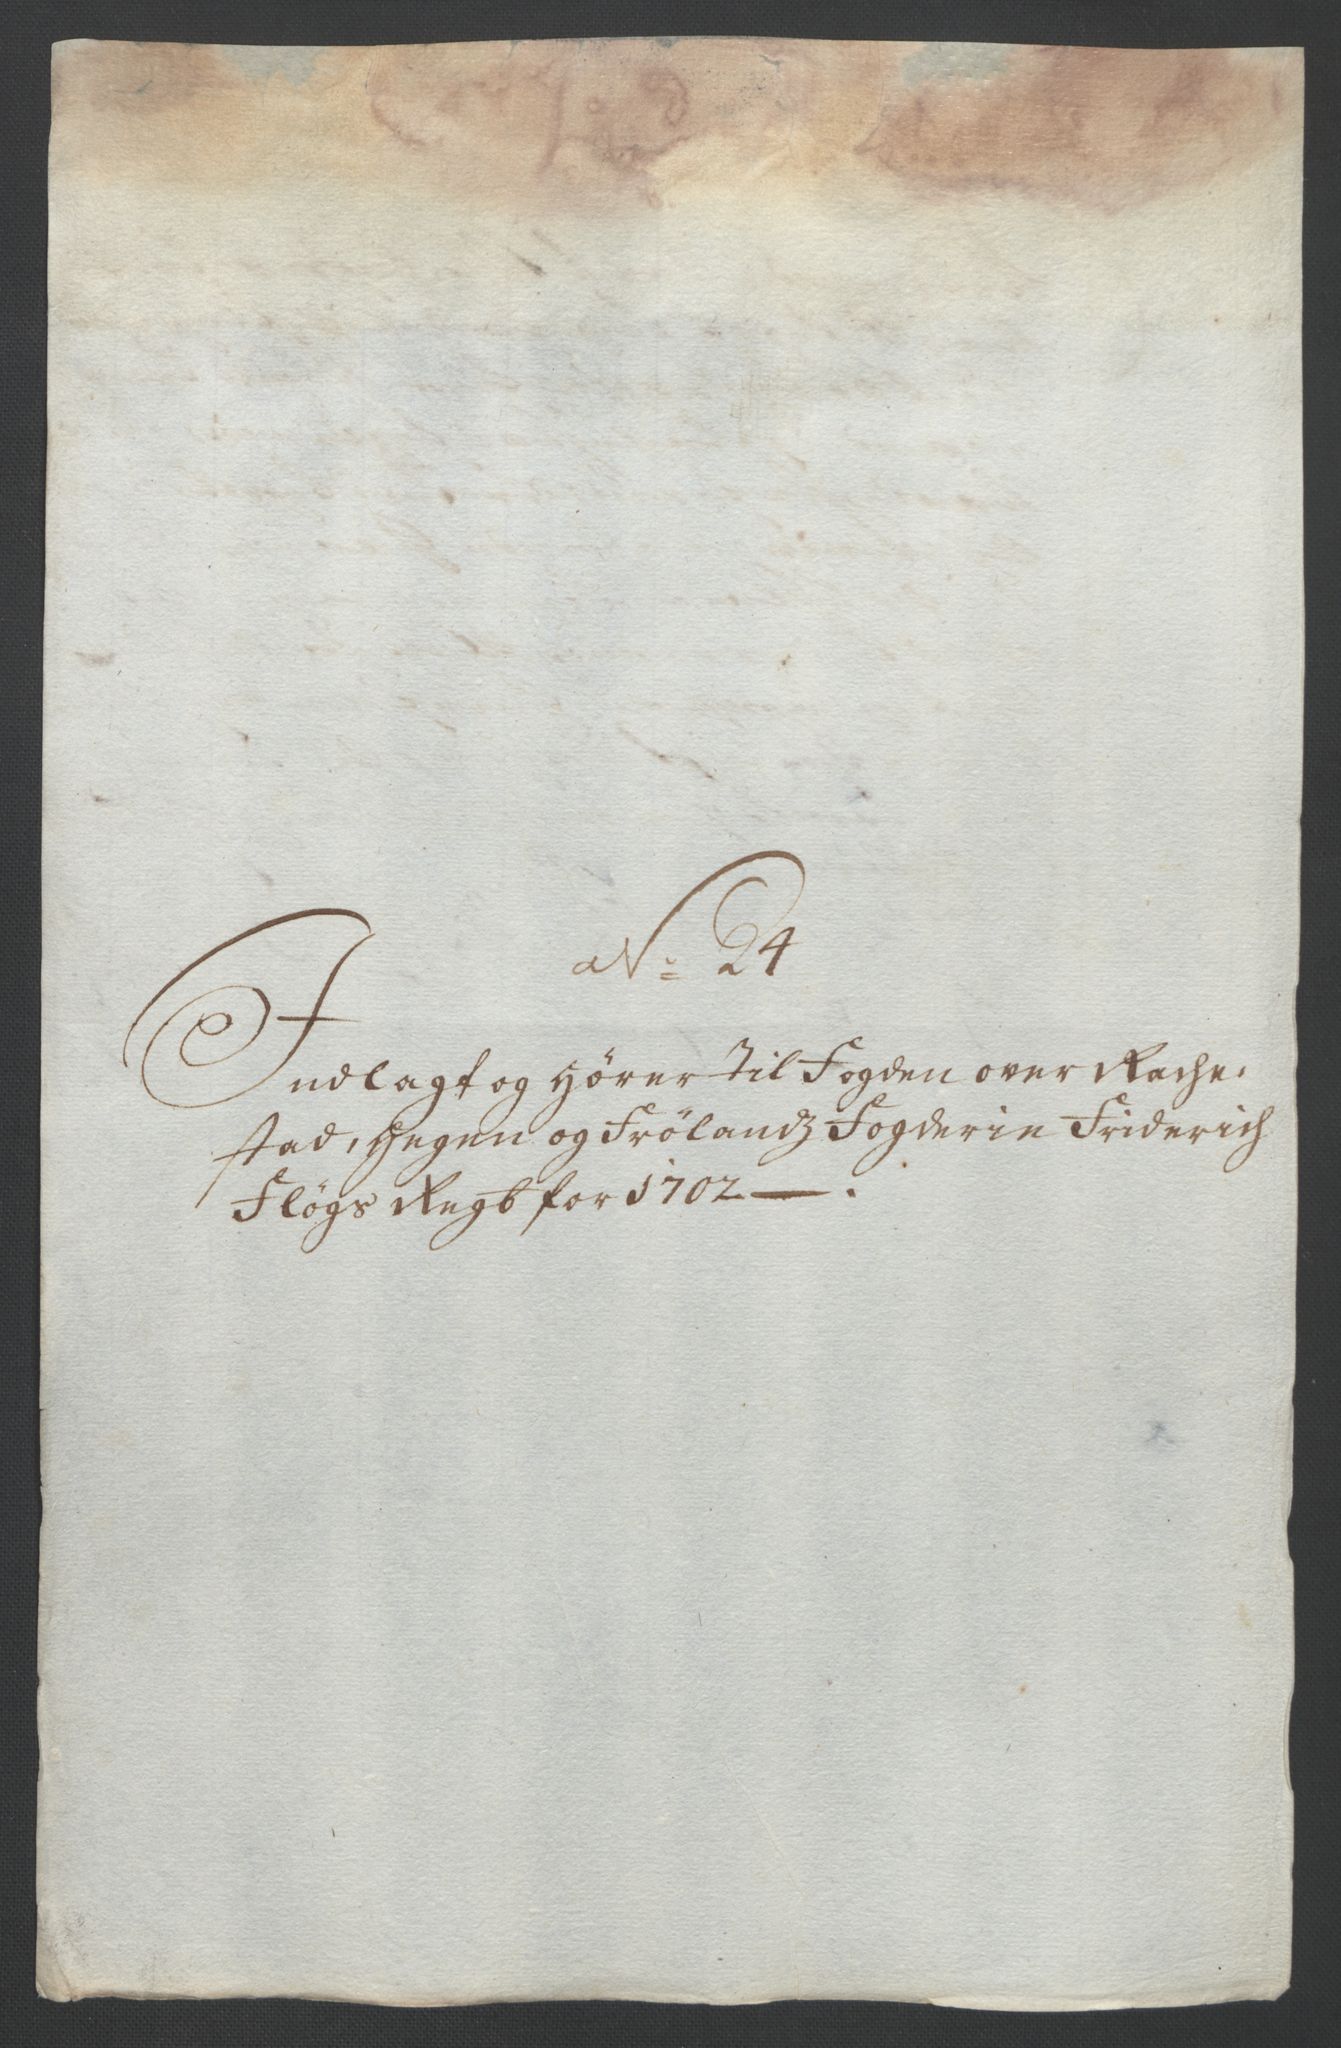 No 24
Indlagt og Hörer til Fogden over Rache-
stad, Heggen og Frölandz Fogderie Friderich
Flögs Regb for 1702 —.